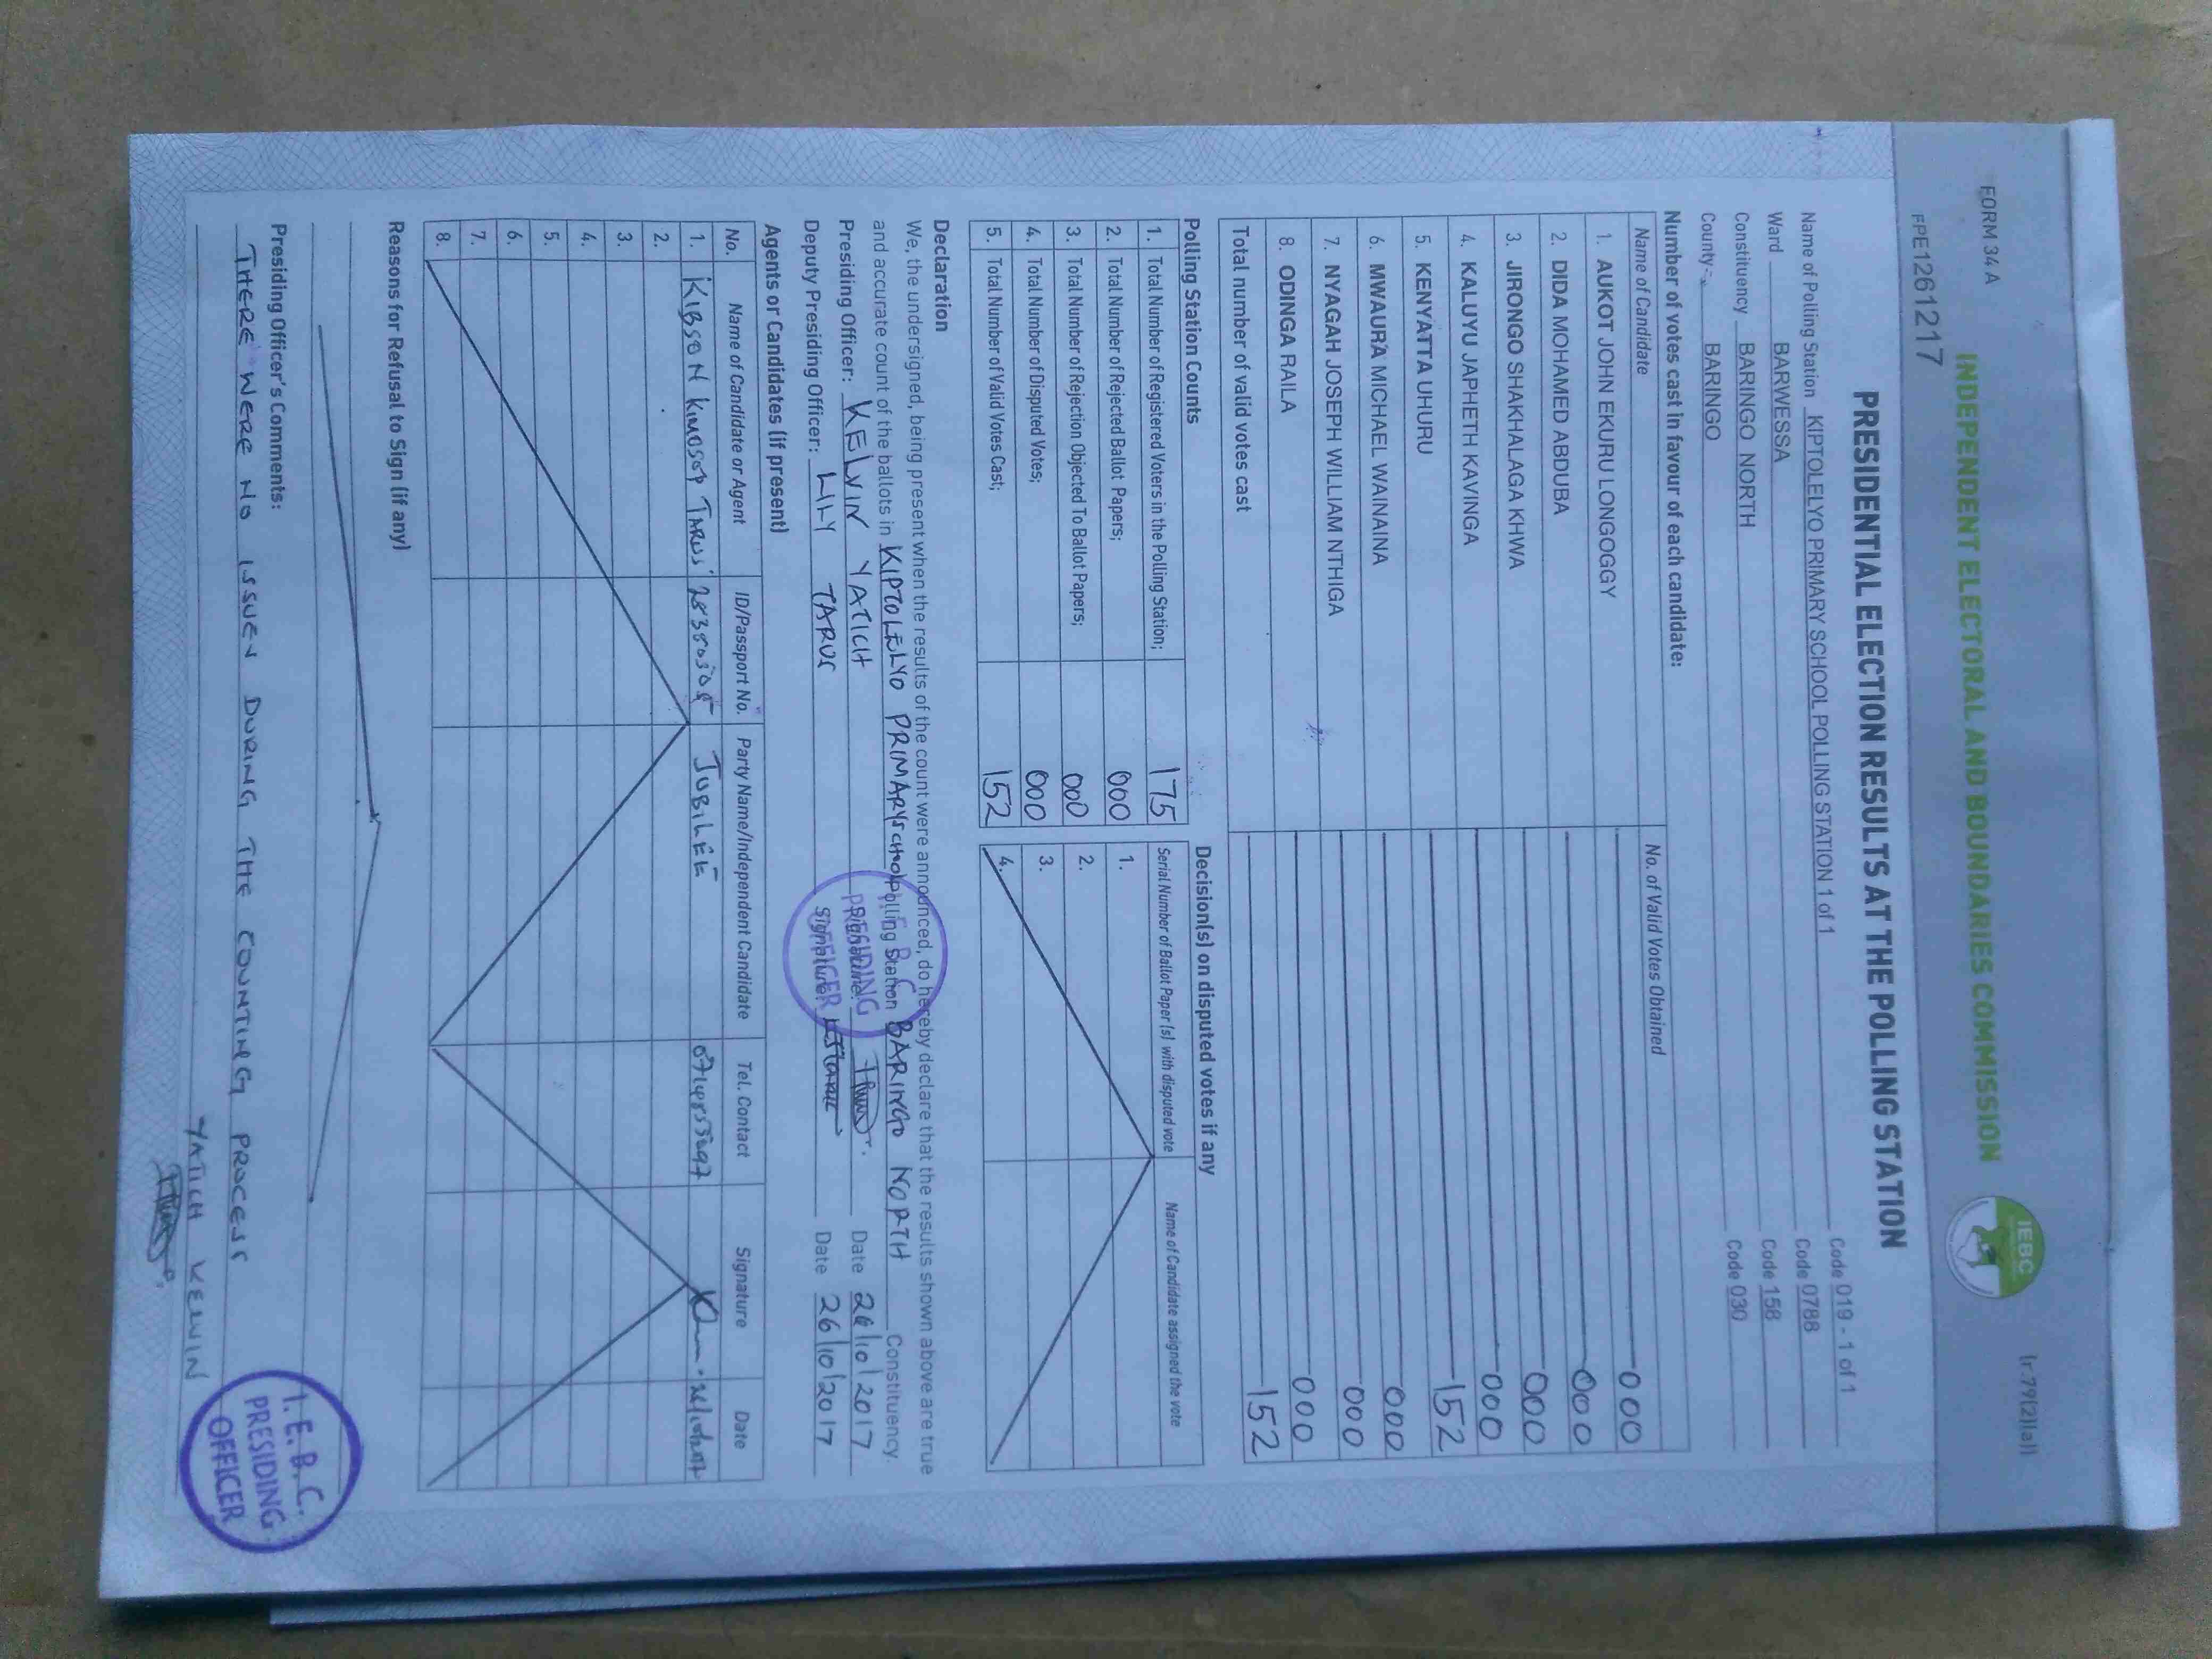 FORM 34 A
(r.79(2)(a))
INDEPENDENT ELECTORAL AND BOUNDARIES COMMISSION
IEBC
FPE1261217
PRESIDENTIAL ELECTION RESULTS AT THE POLLING STATION
Name of Polling Station KIPTOLELYO PRIMARY SCHOOL POLLING STATION 1 of 1 Code 019 - 1 of 1
Ward BARWESSA Code 0788
Constituency BARINGO NORTH Code 158
County BARINGO Code 030
Number of votes cast in favour of each candidate:
Name of Candidate No. of Valid Votes Obtained
1. AUKOT JOHN EKURU LONGOGGY 000
2. DIDA MOHAMED ABDUBA 000
3. JIRONGO SHAKHALAGA KHWA 000
4. KALUYU JAPHETH KAVINGA 000
5. KENYATTA UHURU 152
6. MWAURA MICHAEL WAINAINA 000
7. NYAGAH JOSEPH WILLIAM NTHIGA 000
8. ODINGA RAILA 000
Total number of valid votes cast 152
Polling Station Counts
1. Total Number of Registered Voters in the Polling Station; 175
2. Total Number of Rejected Ballot Papers; 000
3. Total Number of Rejection Objected To Ballot Papers; 000
4. Total Number of Disputed Votes; 000
5. Total Number of Valid Votes Cast; 152
Decision(s) on disputed votes if any
Serial Number of Ballot Paper (s) with disputed vote Name of Candidate assigned the vote
1.
2.
3.
4.
Declaration
We, the undersigned, being present when the results of the count were announced, do hereby declare that the results shown above are true
and accurate count of the ballots in KIPTOLELYO PRIMARY school polling Station BARINGO NORTH Constituency.
Presiding Officer: KELVIN YATICH Signature Date 26/10/2017
Deputy Presiding Officer: LILY TARUS Signature Date 26/10/2017
PRESIDING
OFFICER
Agents or Candidates (if present)
No. Name of Candidate or Agent ID/Passport No. Party Name/Independent Candidate Tel. Contact Signature Date
1. KIBSON KIMOSOP TARUS JUBILEE
2.
3.
4.
5.
6.
7.
8.
Reasons for Refusal to Sign (if any)
Presiding Officer's Comments:
THERE WERE NO ISSUES DURING THE COUNTING PROCESS
YATICH KELVIN
I.E.B.C.
PRESIDING
OFFICER